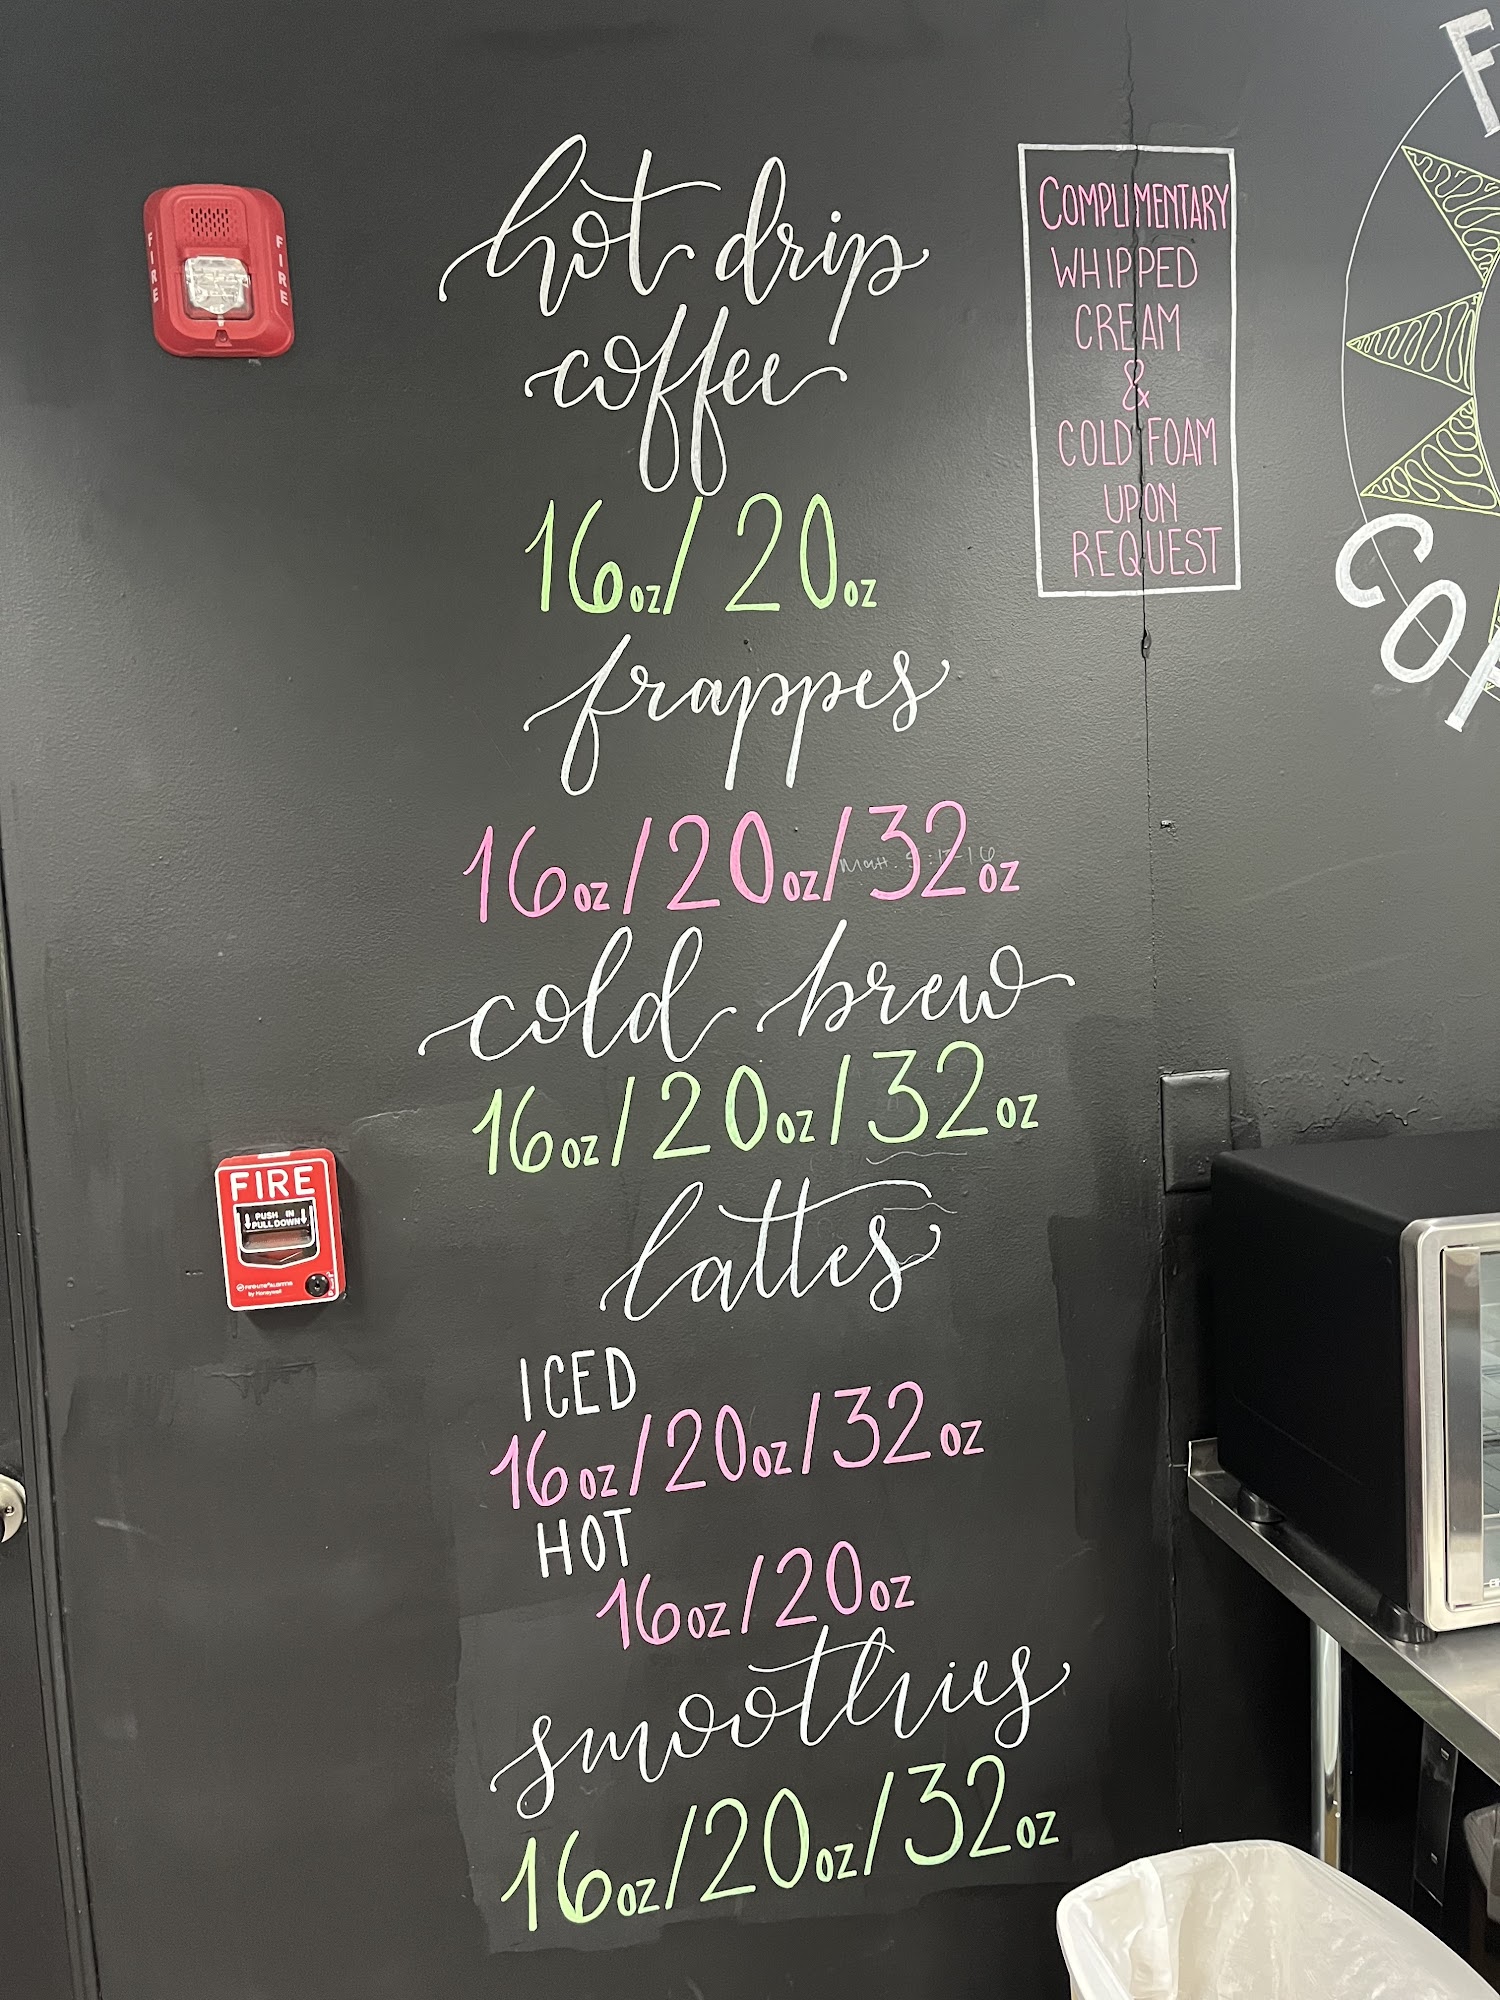 hot drip
coffee
16oz/20oz
frappes
16oz/20oz/32oz
Matt. 5:
cold brew
16oz/20oz/32oz
lattes
ICED
16oz/20oz/32oz
HOT
16oz/20oz
smoothries
16oz/20oz/32oz
COMPLIMENTARY
WHIPPED
CREAM
&
COLD FOAM
UPON
REQUEST
FIRE
FIRE
FIRE
PUSH IN
PULL DOWN
FIRE-LITE ALARMS
by Honeywell